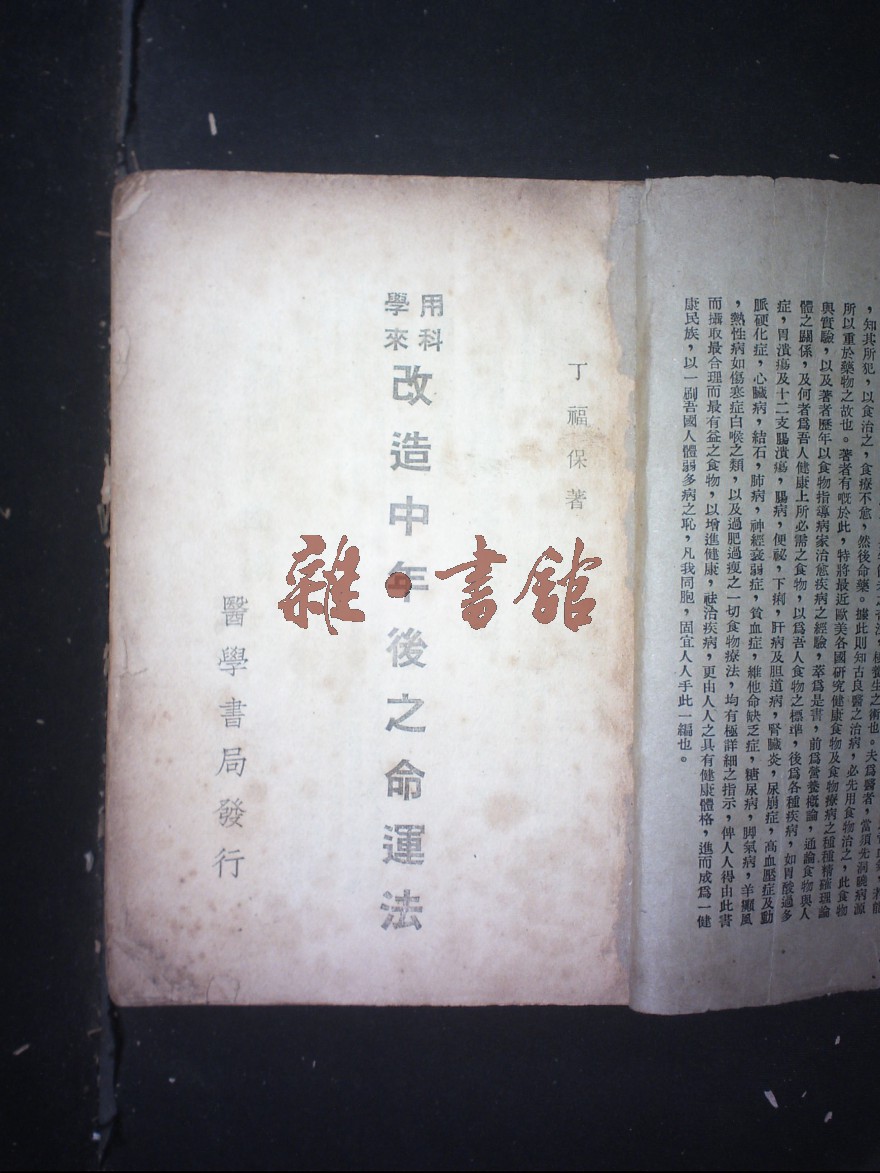 養生之術也。夫爲醫者，當須先洞曉病源
，知其所犯，以食治之，食療不愈，然後命藥。據此則知古良醫之治病，必先用食物治之，此食物
所以重於藥物之故也。著者有慨於此，特將最近歐美各國研究健康食物及食物療病之種種精確理論
與實驗，以及著者歷年以食物指導病家治愈疾病之經驗，萃爲是書，前爲營養概論，通論食物與人
體之關係，及何者爲吾人健康上所必需之食物，以爲吾人食物之標準，後爲各種疾病，如胃酸過多
症，胃潰瘍及十二支腸潰瘍，腸病，便祕，下痢，肝病及胆道病，腎臟炎，尿崩症，高血壓症及動
脈硬化症，心臟病，結石，肺病，神經衰弱症，貧血症，維他命缺乏症，糖尿病，脚氣病，羊癲風
，熱性病如傷寒症白喉之類，以及過肥過瘦之一切食物療法，均有極詳細之指示，俾人人得由此書
而攝取最合理而最有益之食物，以增進健康，祛治疾病，更由人人之具有健康體格，進而成爲一健
康民族，以一刷吾國人體弱多病之恥，凡我同胞，固宜人人手此一編也。
丁福保著
用科
學來
改造中年後之命運法
醫學書局發行
雜·書館